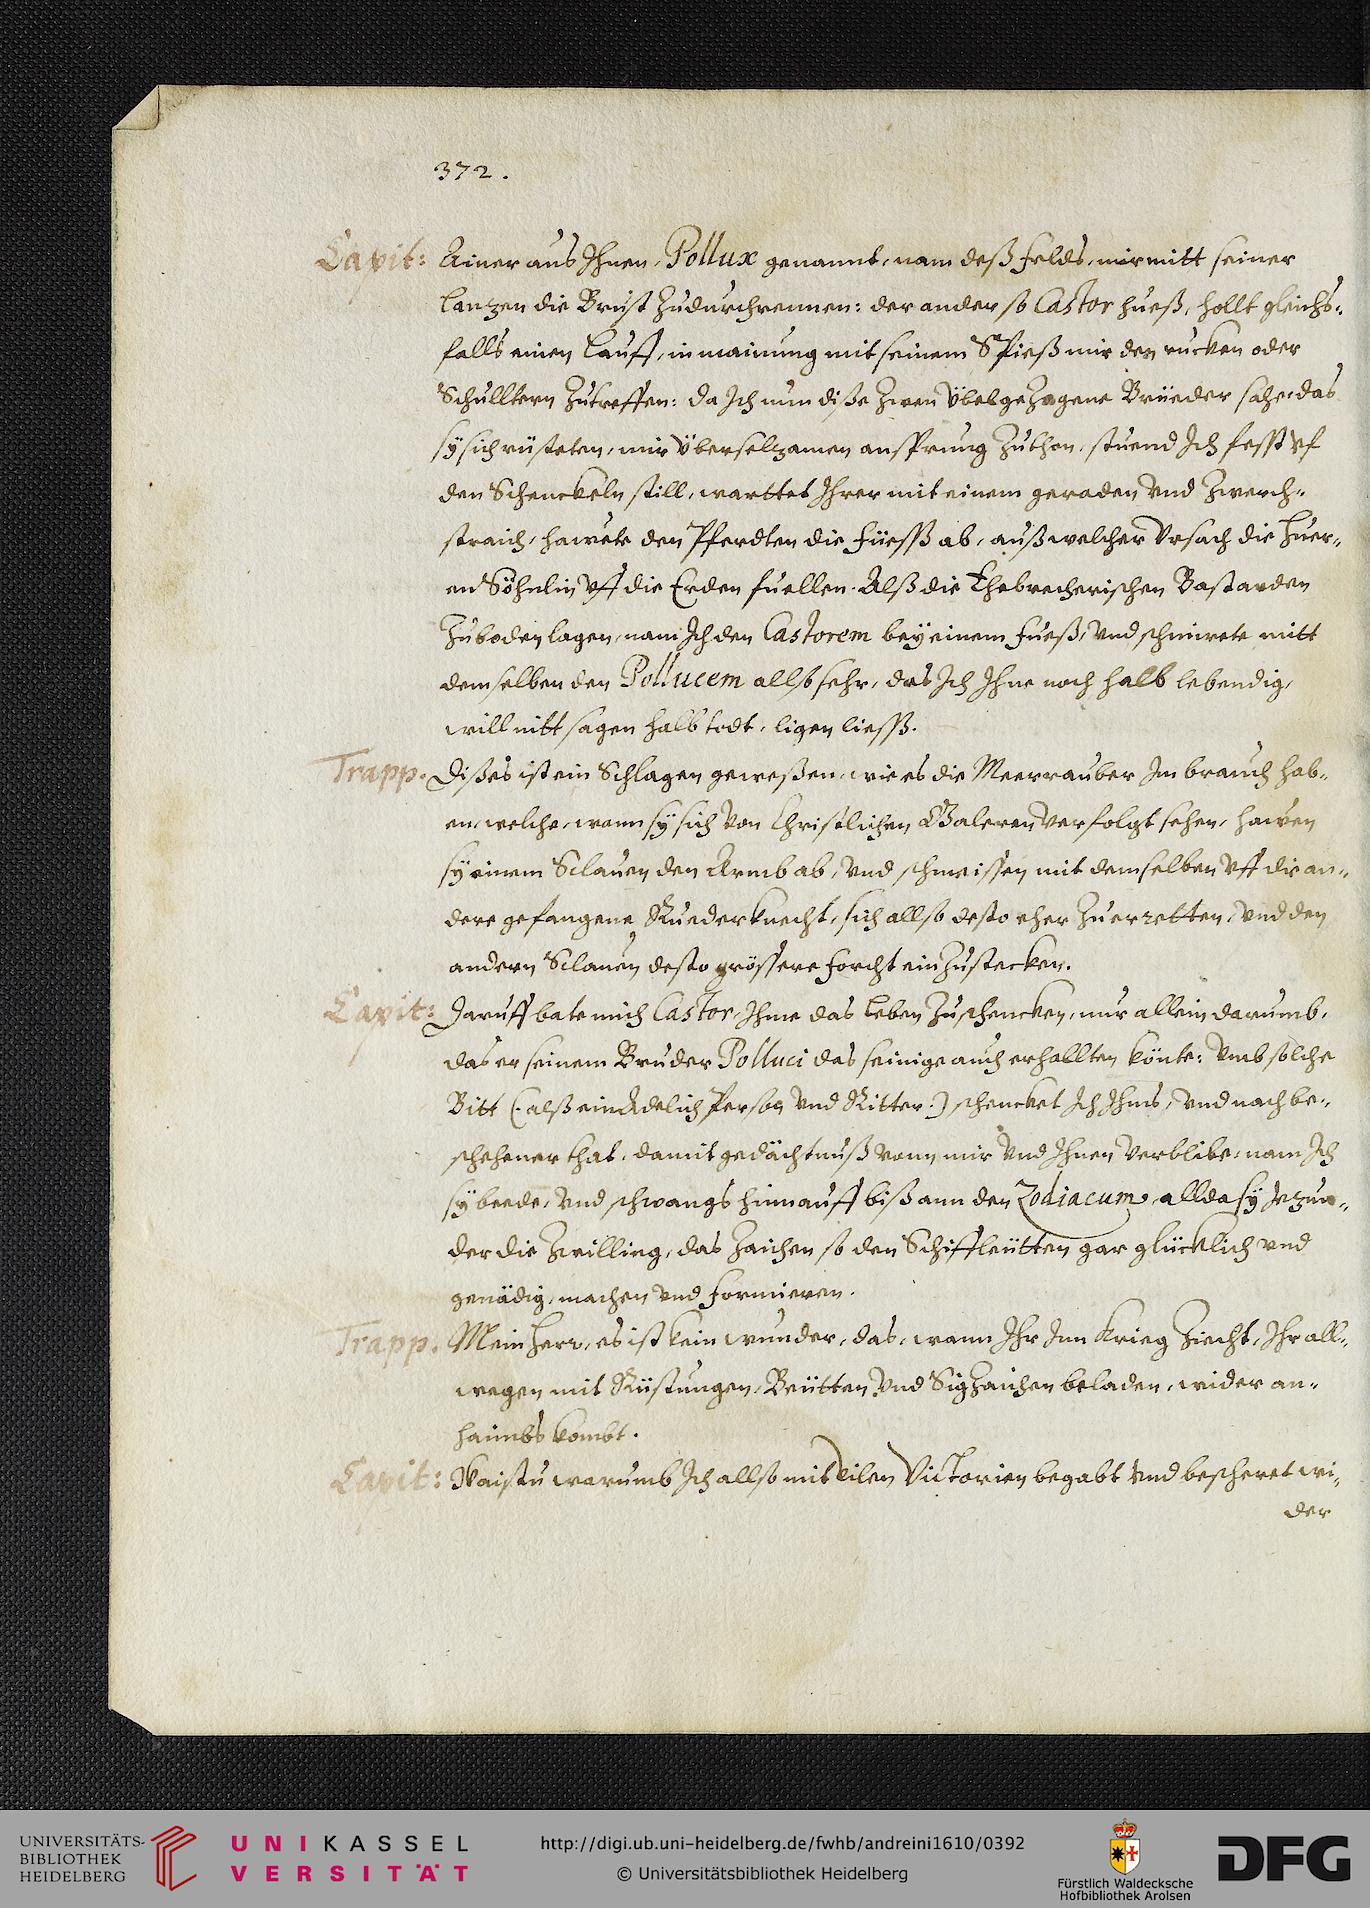 372.
Capit: Ainer aus Ihnen, Pollux genannt, nam deß felds, mir mitt seiner
Lanzen die Brust zudurchrennen: der ander so Castor hueß, hollt gleichs-
falls einen Lauff, in mainung mit seinem Spieß mir den rucken oder
Schulltern zutreffen: da Ich nun diße zwen übelgezogene Brüeder sahe, das
sÿ sich rüsteten, mir überselzamen anspprung zuthon, stuend Ich fesst vf
den Schenckeln still, warttet Ihrer mit einem geraden vnd zwerch-
straich, hawete den Pferdten die füeß ab, auß welcher Vrsach die Huer-
en Söhnlin vff die Erden fuellen. Alß die Ehebrecherischen Bastarden
zuboden lagen, nam Ich den Castorem beÿ einem fueß, vnd schmirete mitt
demselben den Pollucem allso sehr, das Ich Ihne noch halb lebendig,
will nitt sagen halb todt, ligen liesß.
Trapp. Dißes ist ein Schlagen geweßen, wie es die Meerrauber Im brauch hab-
en, welche, wann sÿ sich von Christlichen Galeren verfolgt sehen, hawen
sÿ einem Sclauen den Armb ab, vnd schmeissen mit demselben vff die an-
dere gefangene Ruederknecht, sich allso desto eher zuerretten, vnd den
andern Sclauen desto grössere forcht einzustecken.
Capit: Daruff bate mich Castor, Ihme das Leben zuschencken, nur allein darumb,
das er seinem Bruder Polluci das seinige auch erhallten könte: Vmb solche
Bitt (: alß ein Adelich Person vnd Ritter :) schencket Ich Ihms, vnd nach be-
schehener that, damit gedächtnuß vonn mir vnd Ihnen verblibe, nam Ich
sÿ beede, vnd schwangs hinnauff biß ann den Zodiacum, allda sÿ yezun-
der die Zwilling, das Zaichen so den Schiffleütten gar glücklich vnd
genädig, machen vnd formieren.
Trapp. Mein Herr, es ist kein wunder, das, wann Ihr Inn Krieg ziecht, Ihr all-
wegen mit Rüstungen, Beütten vnd Sigzaichen beladen, wider an-
haimbs kombt.
Capit: Waistu warumb Ich allso mit vilen Victorien begabt vnd bescheret wi-
der
UNIVERSITÄTS-
BIBLIOTHEK
HEIDELBERG
UNIKASSEL
VERSITÄT
http://digi.ub.uni-heidelberg.de/fwhb/andreini1610/0392
© Universitätsbibliothek Heidelberg
Fürstlich Waldecksche
Hofbibliothek Arolsen
DFG